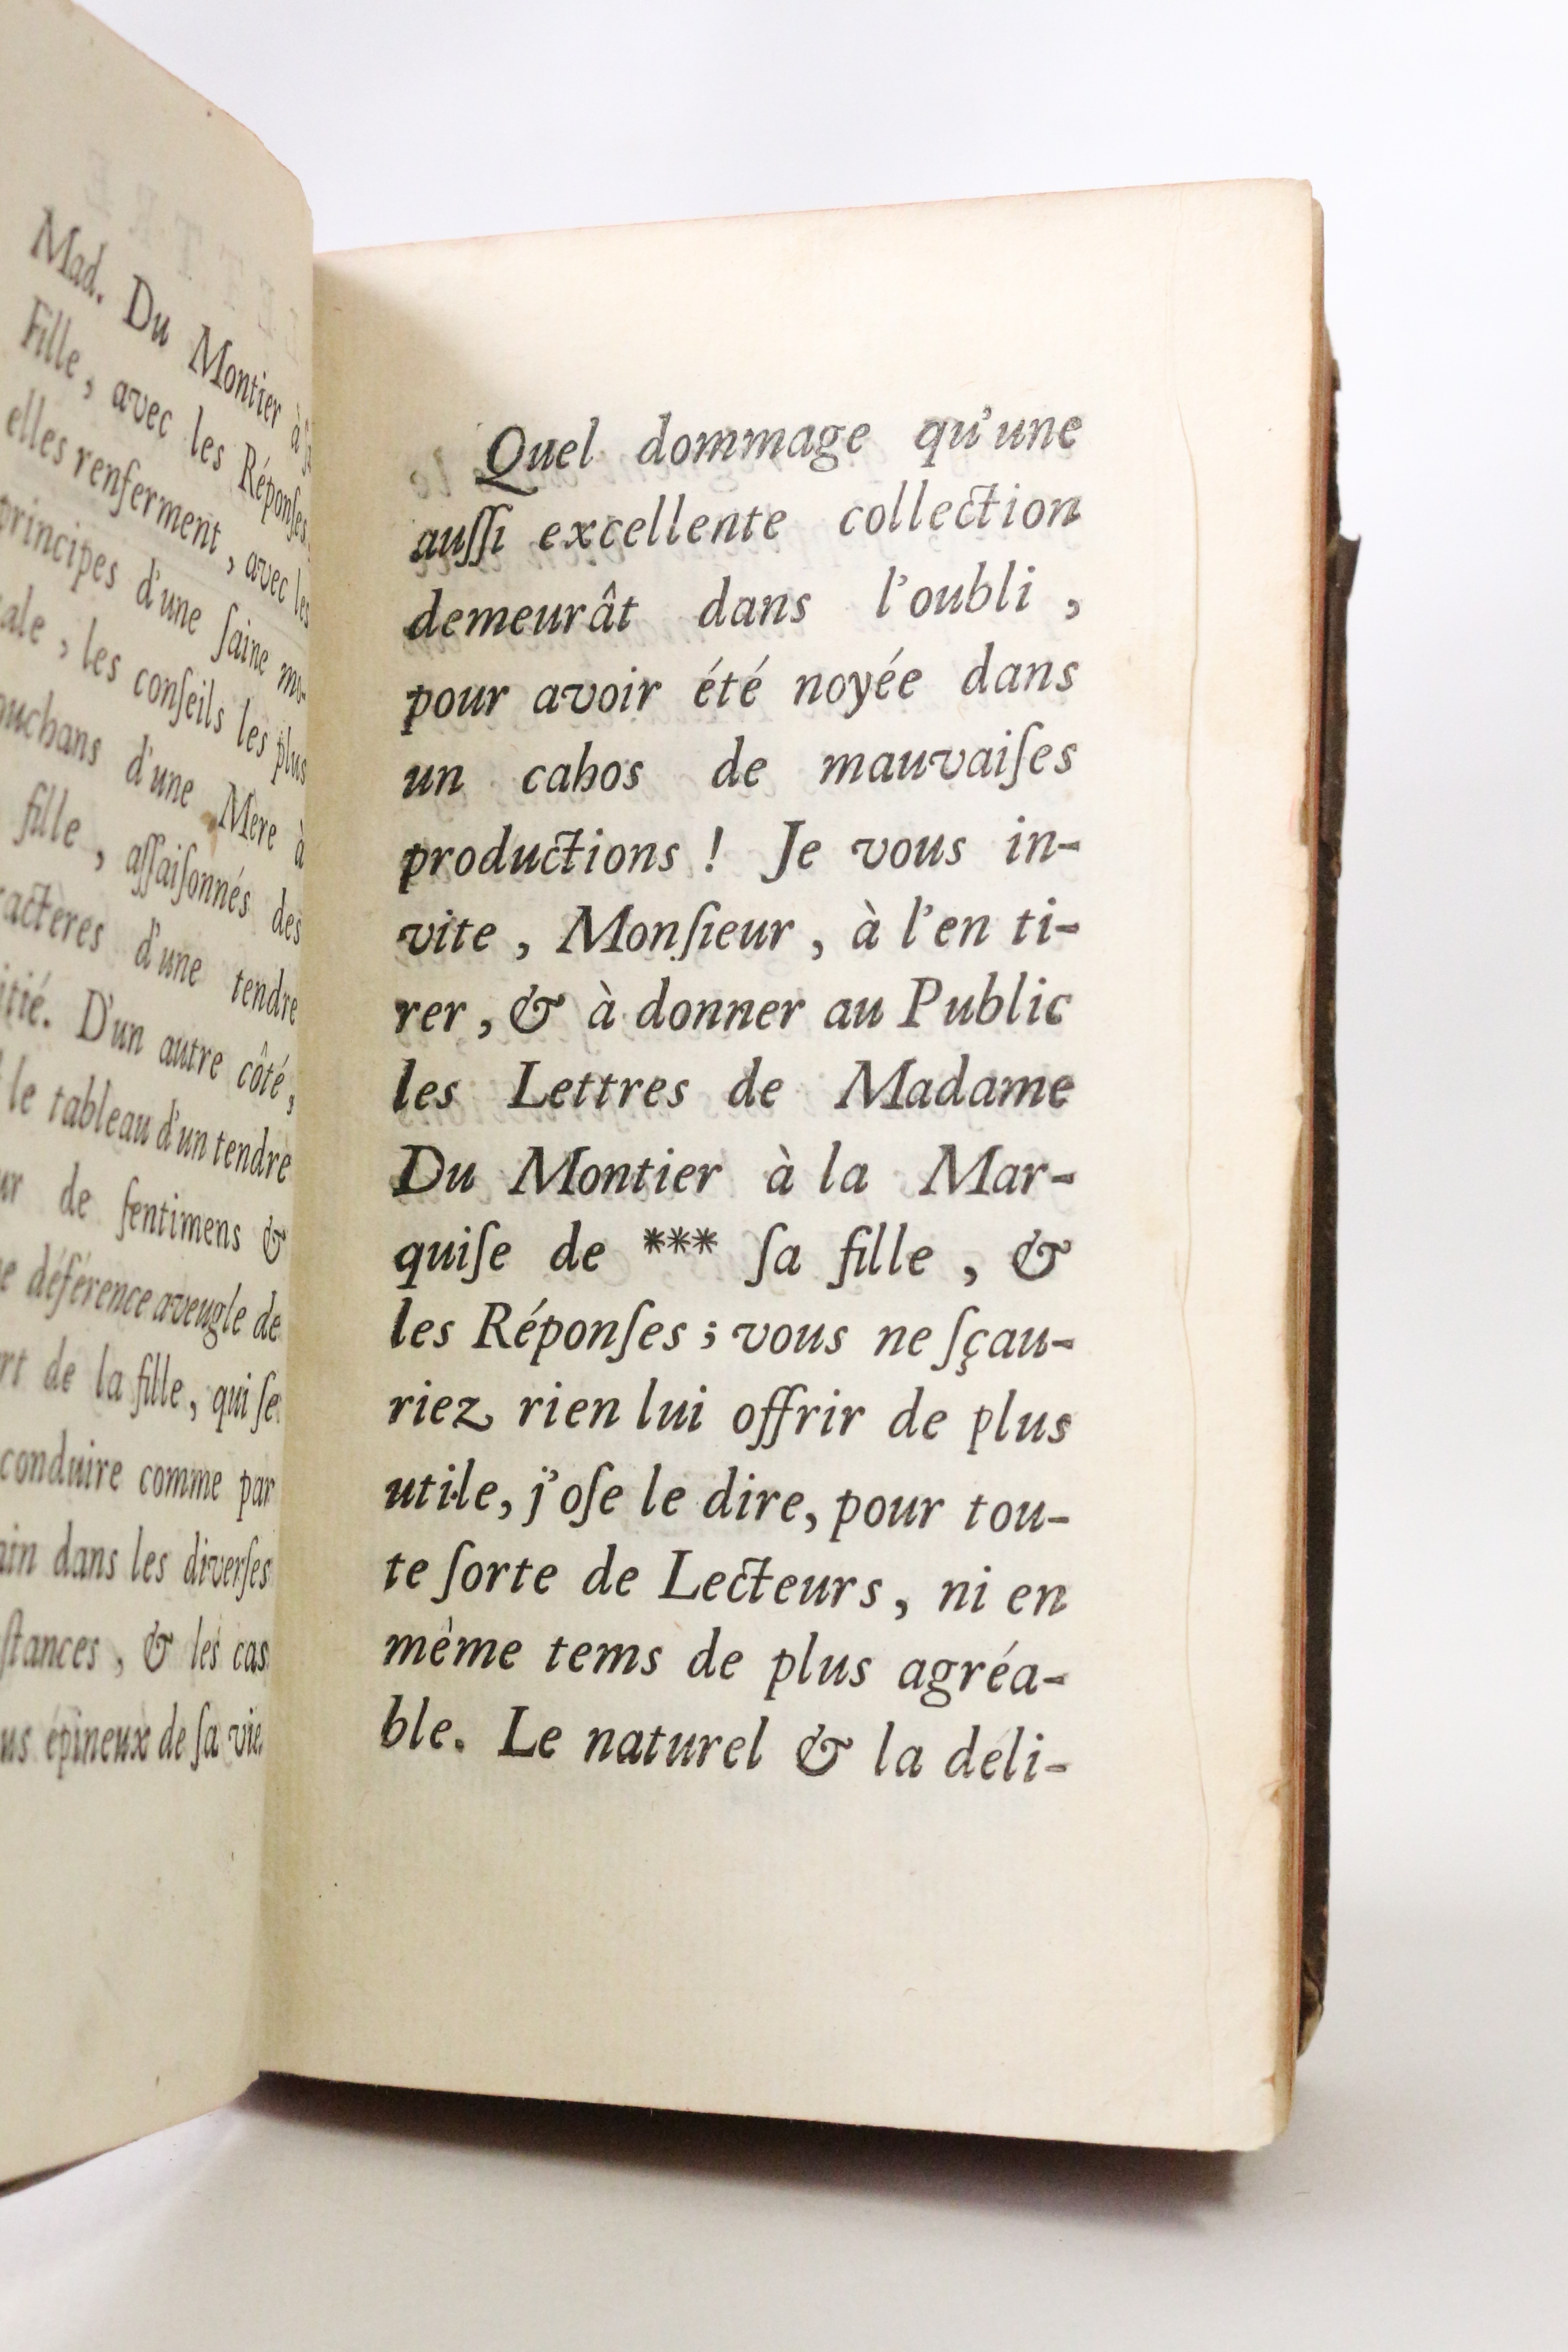 Mad. Du Montier à
Fille, avec les Réponſes
elles renferment, avec les
principes d'une ſaine mo-
ale, les conſeils les plus
ouchans d'une Mere à
fille, aſſaiſonnés des
racteres d'une tendre
itié. D'un autre côté,
le tableau d'un tendre
ur de ſentimens &
e déférence aveugle de
rt de la fille, qui ſe
conduire comme par
ain dans les diverſes
ſtances, & les cas
us épineux de ſa vie
Quel dommage qu'une
auſſi excellente collection
demeurât dans l'oubli,
pour avoir été noyée dans
un cahos de mauvaiſes
productions ! Je vous in-
vite, Monſieur, à l'en ti-
rer, & à donner au Public
les Lettres de Madame
Du Montier à la Mar-
quiſe de *** ſa fille, &
les Réponſes ; vous ne ſçau-
riez rien lui offrir de plus
utile, j'oſe le dire, pour tou-
te ſorte de Lecteurs, ni en
même tems de plus agréa-
ble. Le naturel & la déli-